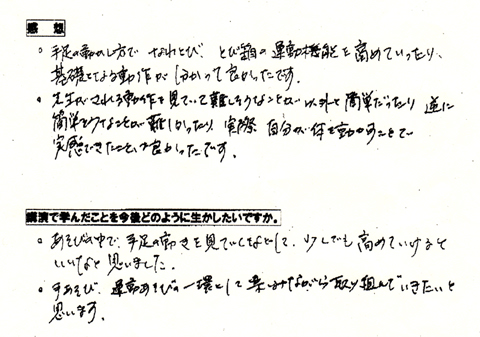 感　想
○ 手足の動かし方で なわとび、とび箱の運動機能を高めていったり、
基礎となる動作が分かって良かったです。
○ 先生がされる動作を見ていて難しそうなことが以外と簡単だったり 逆に
簡単そうなことが難しかったり、実際 自分が体を動かすことで
実感できたことが良かったです。
講演で学んだことを今後どのように生かしたいですか。
○ あそびの中で、手足の動きを見ていくなどして、少しでも高めていけると
いいなと思いました。
○ 手あそび、運動あそびの一環として楽しみながら取り組んでいきたいと
思います。